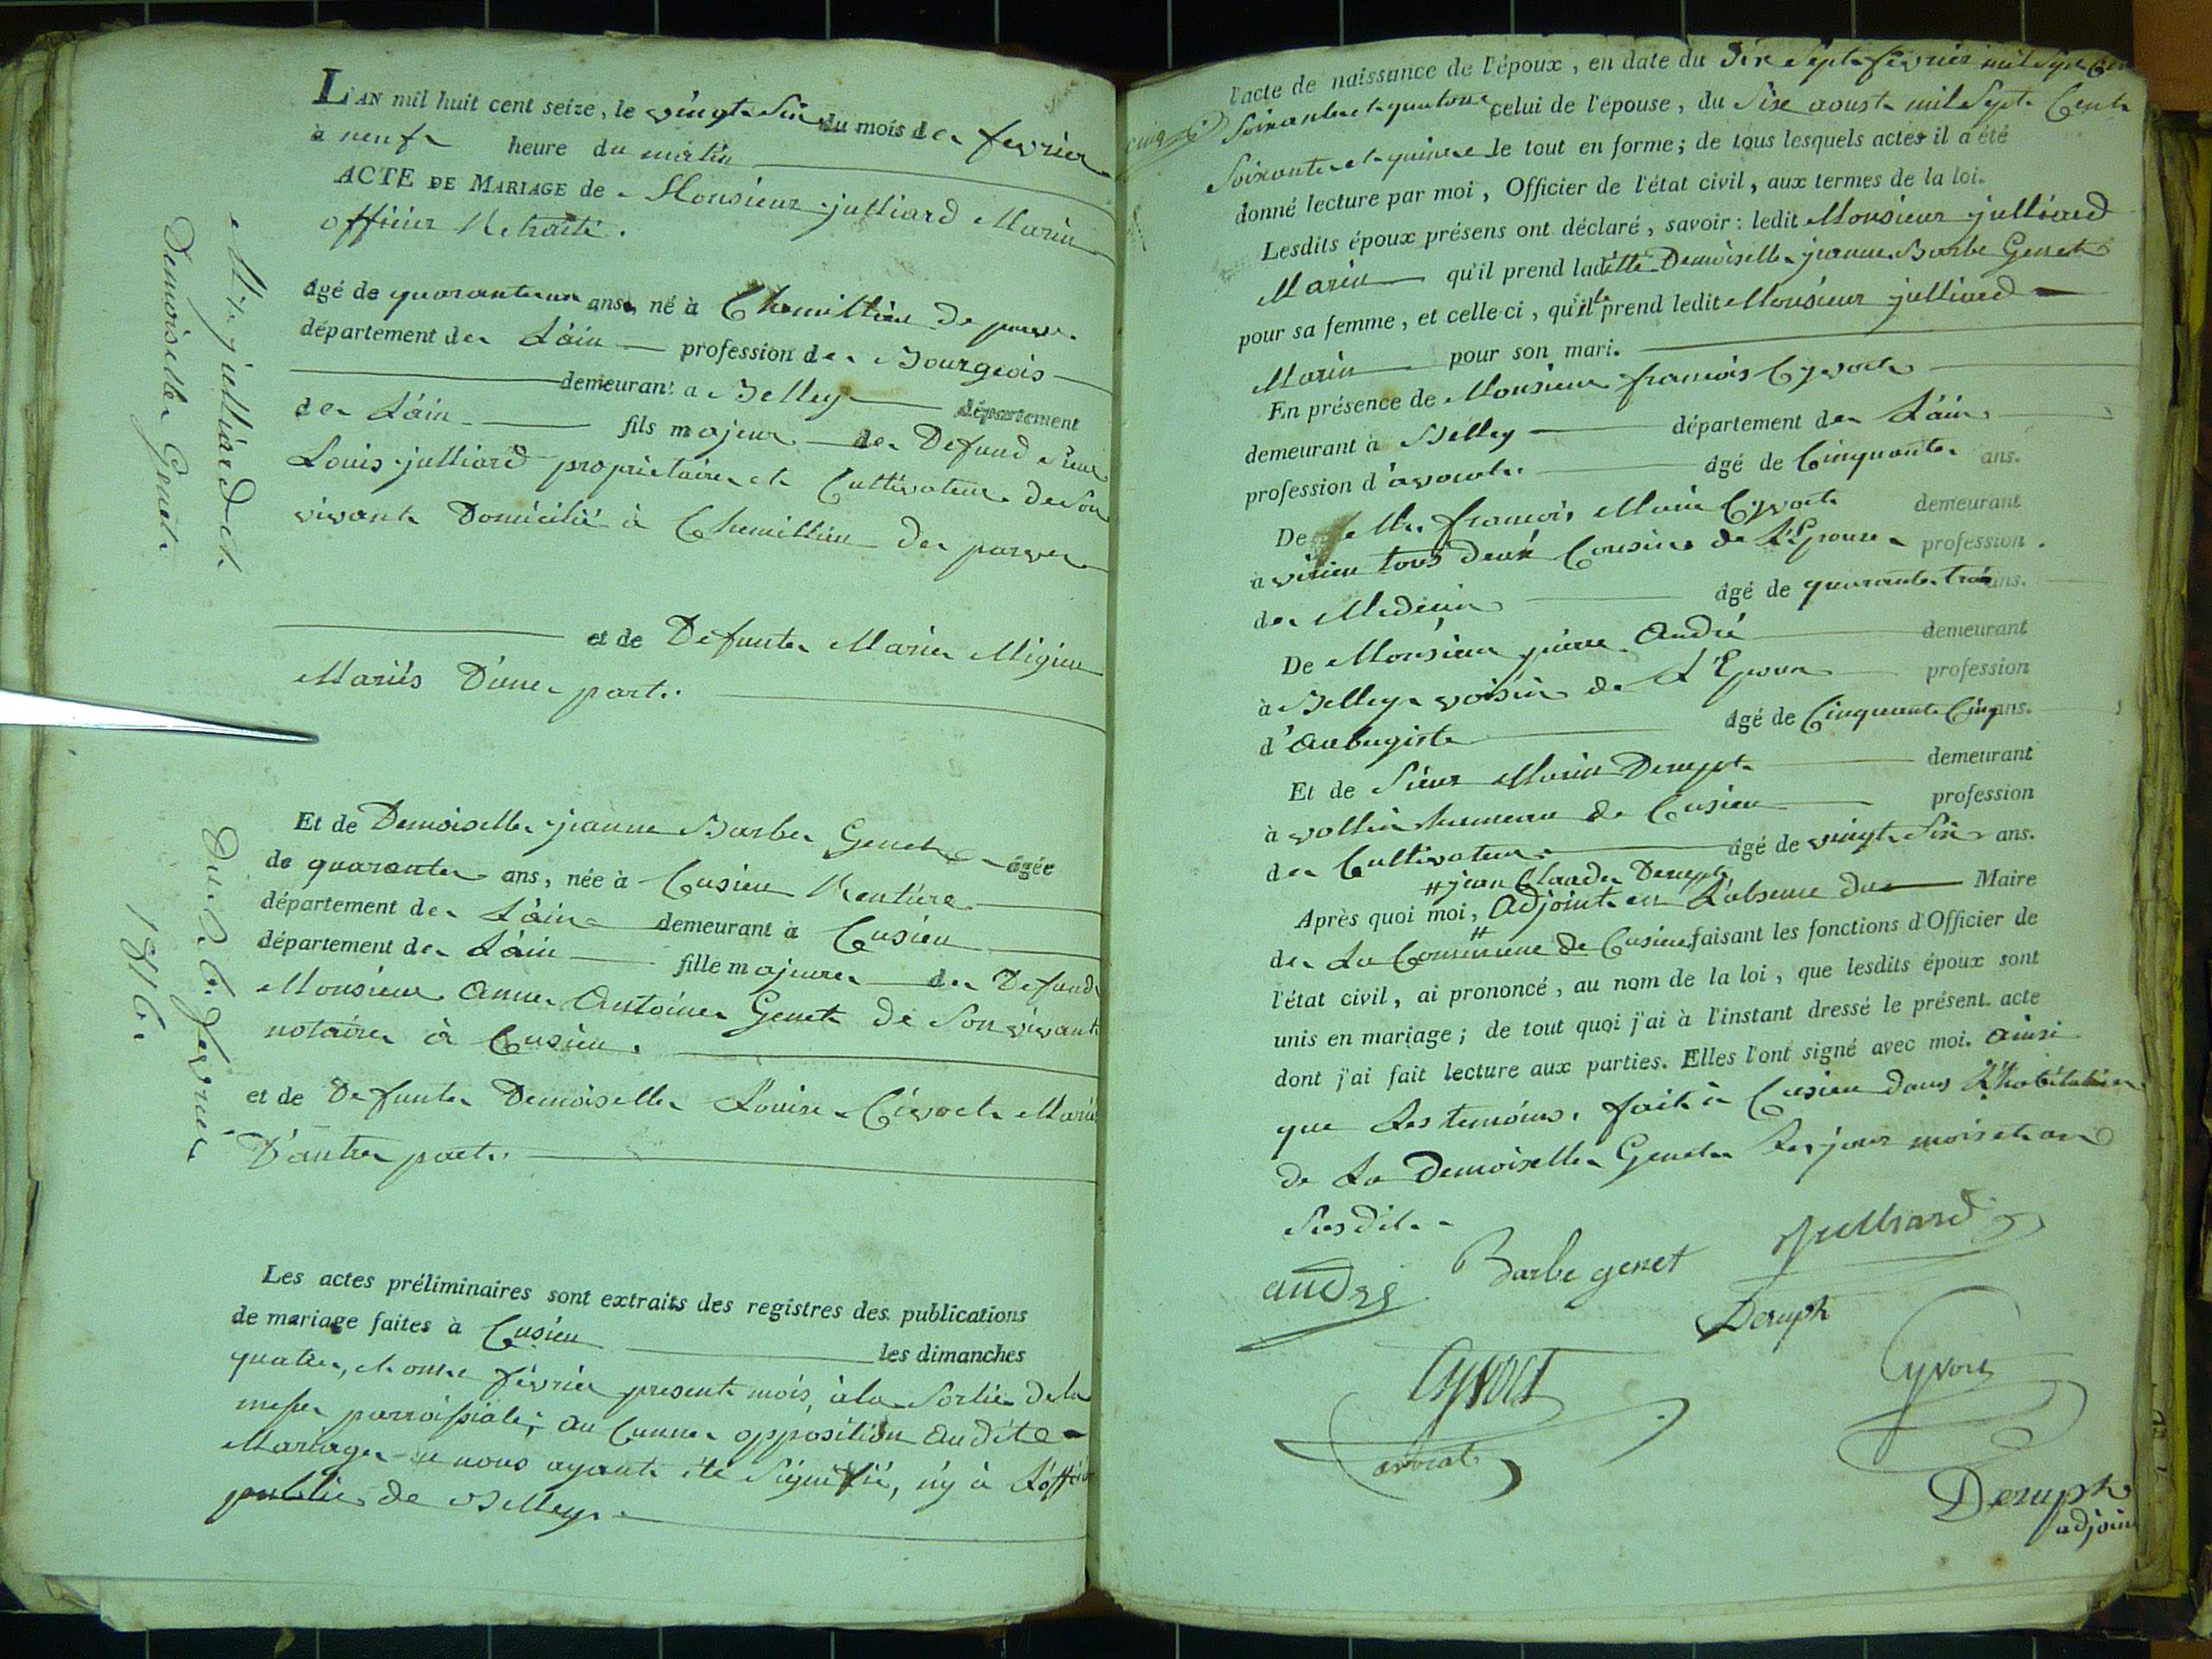 Mr julliard et
Demoiselle Genet
du 26. fevrier
1816.
L'AN mil huit cent seize, le vingt Six du mois de fevrier
à neuf heure du matin
ACTE DE MARIAGE de Monsieur julliard Marin
officier Retraité.
âgé de quarante un ans, né à Chemillieu de parve
département de L'ain profession de Bourgeois
demeurant a Belley département
de L'ain fils majeur de Defund Sieur
Louis julliard proprietaire et Cultivateur de Son
vivant Domicilié à Chemillieu de parve
et de Defunte Marie Migieu
Mariés D'une part.
Et de Demoiselle jeanne Barbe Genet âgée
de quarante ans, née à Cusieu Rentiere
département de L'ain demeurant à Cusieu
département de L'ain fille majeure de Defund
Monsieur Anne Antoine Genet de Son vivant
notaire à Cusieu.
et de Defunte Demoiselle Louise Civoct Mariés
D'autre part.
Les actes préliminaires sont extraits des registres des publications
de mariage faites à Cusieu les dimanches
quatre, et onze fevrier present mois, à la Sortie de la
messe parroissiale; au Cunne opposition audite
Mariage ne nous ayant été Signifié, ny à L'officier
public de Belley.
l'acte de naissance de l'époux, en date du Dix Sept fevrier mil Sept Cent
Soixante et quatorze celui de l'épouse, du Six aoust mil Sept Cent
Soixante et quinze le tout en forme; de tous lesquels actes il a été
donné lecture par moi, Officier de l'état civil, aux termes de la loi.
Lesdits époux présens ont déclaré, savoir: ledit Monsieur julliard
Marin qu'il prend ladite Demoiselle jeanne Barbe Genet
pour sa femme, et celle-ci, qu'elle prend ledit Monsieur julliard
Marin pour son mari.
En présence de Monsieur françois Cyvoct
demeurant à Belley département de L'ain
profession d'avocat. âgé de Cinquante ans.
De Mr. françois Marie Cyvoct demeurant
à virieu tous deux Cousins de L'Epouse profession
de Medecin âgé de quarante trois ans.
De Monsieur pierre André demeurant
à Belley voisin de L'Epoux profession
d'Aubergiste âgé de Cinquante Cinq ans.
Et de Sieur Marin Derupt demeurant
à vollien hameau de Cusieu profession
de Cultivateur. âgé de vingt Six ans.
# jean Claude Derupt
Après quoi moi, Adjoint en L'absence du Maire
de La Commune de Cusieu faisant les fonctions d'Officier de
l'état civil, ai prononcé, au nom de la loi, que lesdits époux sont
unis en mariage; de tout quoi j'ai à l'instant dressé le présent acte
dont j'ai fait lecture aux parties. Elles l'ont signé avec moi. Ainsi
que Les temoins. fait à Cusieu dans L'habitation
de La Demoiselle Genet Les jour mois et an
Susdit.
andré Barbe genet Julliard
Deruph
Cyvoct Cyvoct
avocat
Deruph
adjoint